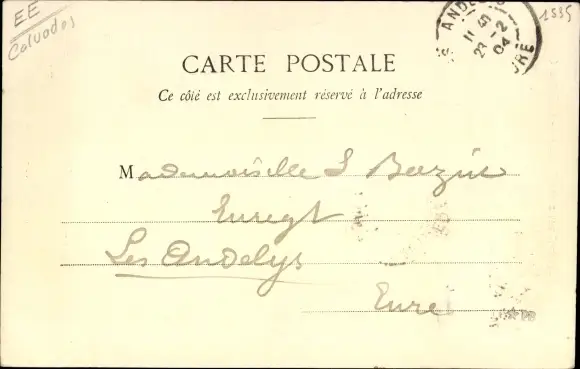 EE
Calvados
1335
ANDE
11 15
23 -2
04
URE
CARTE POSTALE
Ce côté est exclusivement réservé à l'adresse
Mademoiselle S Bazin
Les Andelys
Eure